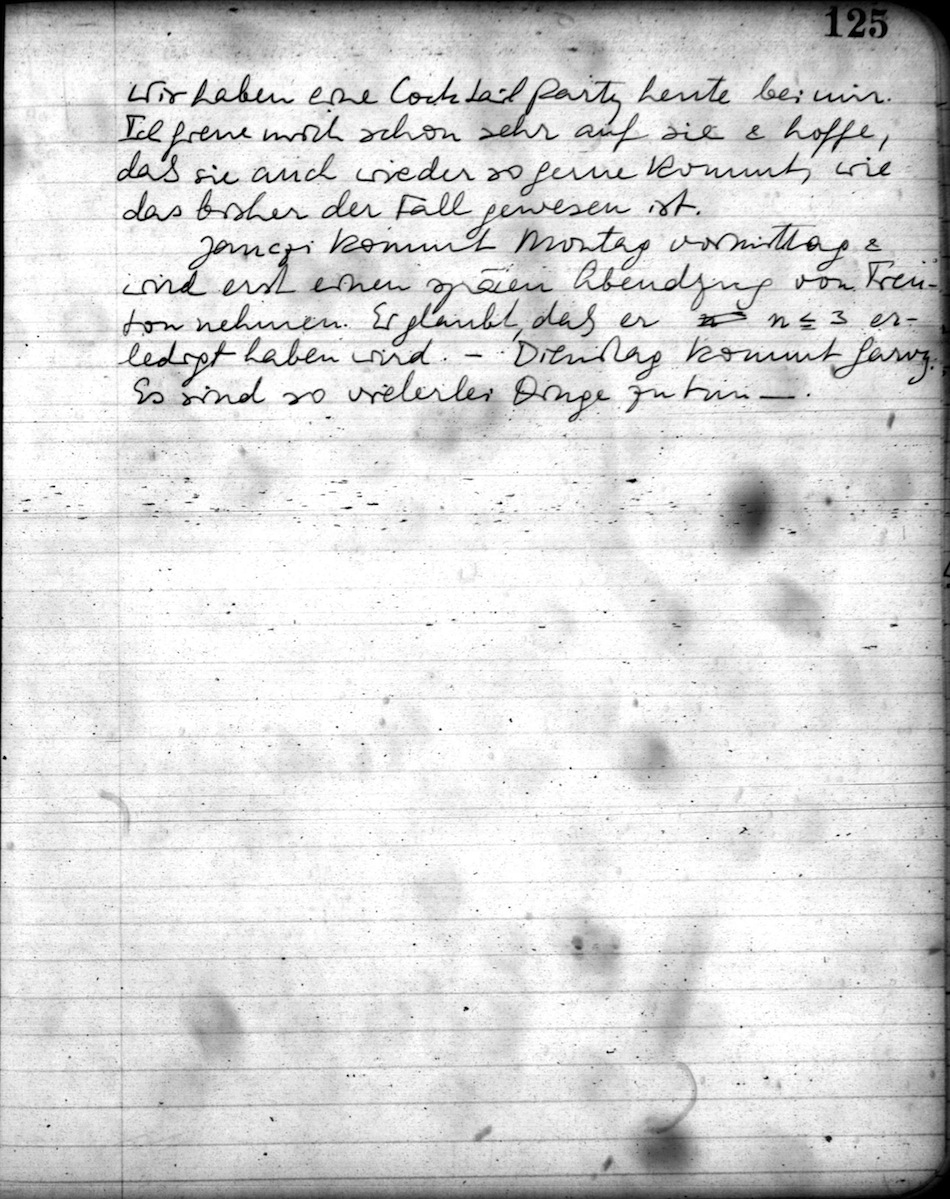 125
Wir haben eine Cocktail Party heute bei mir.
Ich freue mich schon sehr auf sie & hoffe,
daß sie auch wieder so gerne kommt, wie
das bisher der Fall gewesen ist.
Janczi kommt Montag vormittag &
wird erst einen späten Abendzug von Tren-
ton nehmen. Er glaubt, daß er n ≤ 3 er-
ledigt haben wird. – Dienstag kommt
Es sind so vielerlei Dinge zu tun —.